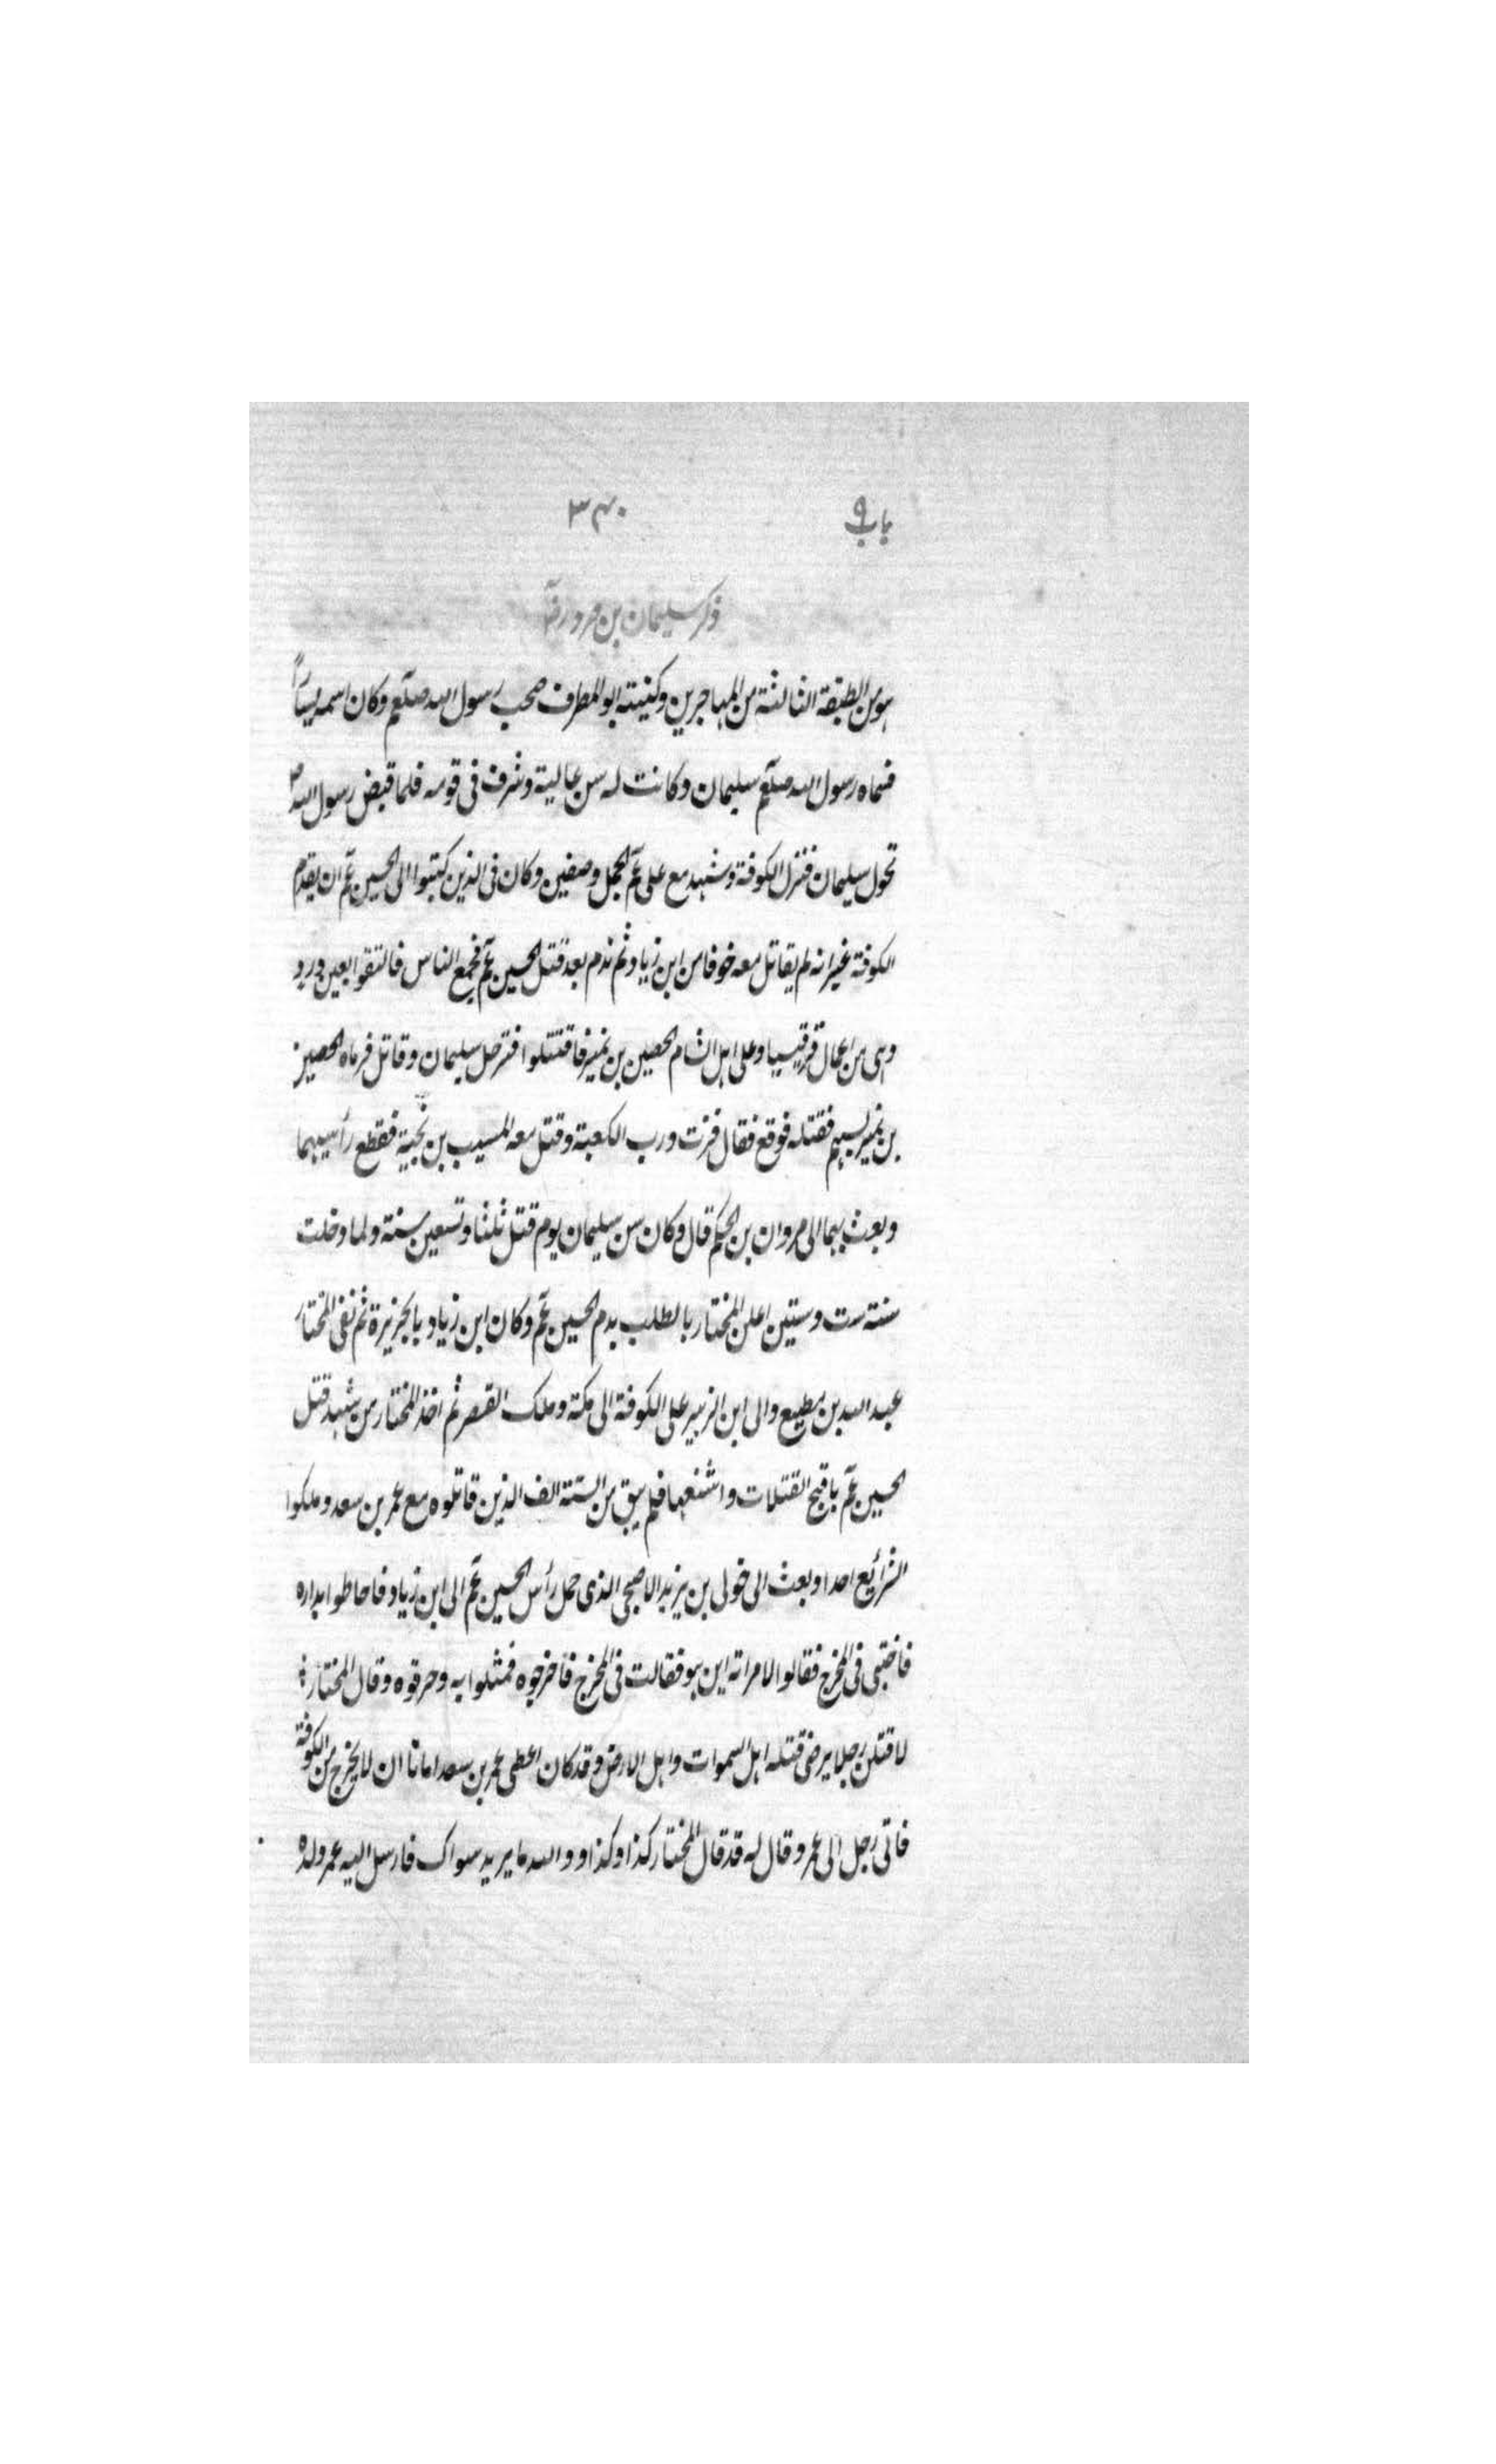 باب ٩
٣٤٠
ذكر سليمان بن صرد رضؔ
هو من الطبقة الثالثة من المهاجرين وكنيته ابو المطرف صحب رسول الله صلعم وكان اسمه يسارًا
فسماه رسول الله صلعم سليمان وكانت له سن عالية وشرف فى قومه فلما قبض رسول الله ص
تحول سليمان فنزل الكوفة وشهد مع على عم الجمل وصفين وكان فى الذين كتبوا الى الحسين عم ان يقدم
الكوفة غير انه لم يقاتل معه خوفا من ابن زياد ثم ندم بعد قتل الحسين عم فجمع الناس فالتقوا بعين وردد
وهى من اعمال قرقيسيا وعلى اهل الشام الحصين بن نمير فاقتتلوا فترجل سليمان وقاتل فرماه الحصين
بن نمير بسهم فقتله فوقع فقال فزت ورب الكعبة وقتل معه المسيب بن نجبة فقطع رأسيهما
وبعث بهما الى مروان بن الحكم قال وكان سن سليمان يوم قتل ثلثا وتسعين سنة ولما دخلت
سنة ست وستين اعلن المختار بالطلب بدم الحسين عم وكان ابن زياد بالجزيرة ثم نفى المختار
عبد الله بن مطيع والى ابن الزبير على الكوفة الى مكة وملك القصر ثم اخذ المختار من شهد قتل
الحسين عم باقبح القتلات واشنعها فلم يبق من الستة الف الذين قاتلوه مع عمر بن سعد وملكوا
الشرائع احدا وبعث الى خولى بن يزيد الاصبحى الذى حمل رأس الحسين عم الى ابن زياد فاحاطوا بداره
فاختبى فى المخرج فقالوا لامراته اين هو فقالت فى المخرج فاخرجوه فمثلوا به وحرقوه وقال المختار
لاقتلن رجلا يرضى قتله اهل السموات واهل الارض وقد كان اعطى عمر بن سعد امانا ان لا يخرج من الكوفة
فاتى رجل الى عمر وقال له قد قال المختار كذا وكذا ووالله ما يريد سواك فارسل اليه عمر ولده